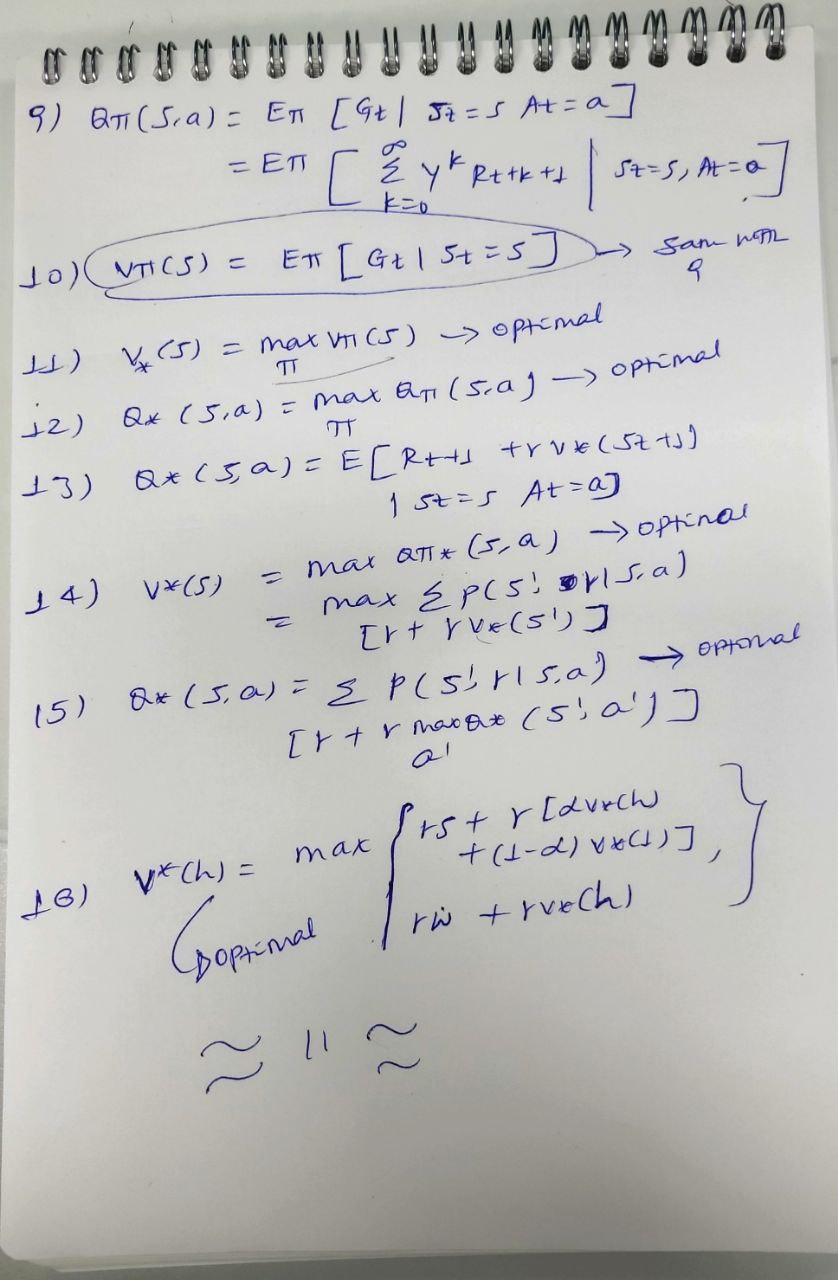 9) Qπ(s,a) = Eπ [Gt | St = s At = a]
= Eπ [ ∞ Σ k=0 γ^k Rt+k+1 | St = s, At = a ]
10) Vπ(s) = Eπ [Gt | St = s] → same with 9
11) V*(s) = max π Vπ(s) → optimal
12) Q*(s,a) = max π Qπ(s,a) → optimal
13) Q*(s,a) = E[Rt+1 + r V*(St+1)
| St = s At = a]
14) V*(s) = max Qπ*(s,a) → optimal
= max Σ P(s', r | s,a)
[r + r V*(s')]
15) Q*(s,a) = Σ P(s', r | s,a) → optimal
[r + r max a' Q*(s', a')]
16) V*(h) = max { rs + r [αV*(h)
+ (1-α) V*(1)] ,
rw + rV*(h) }
optimal
≈ || ≈